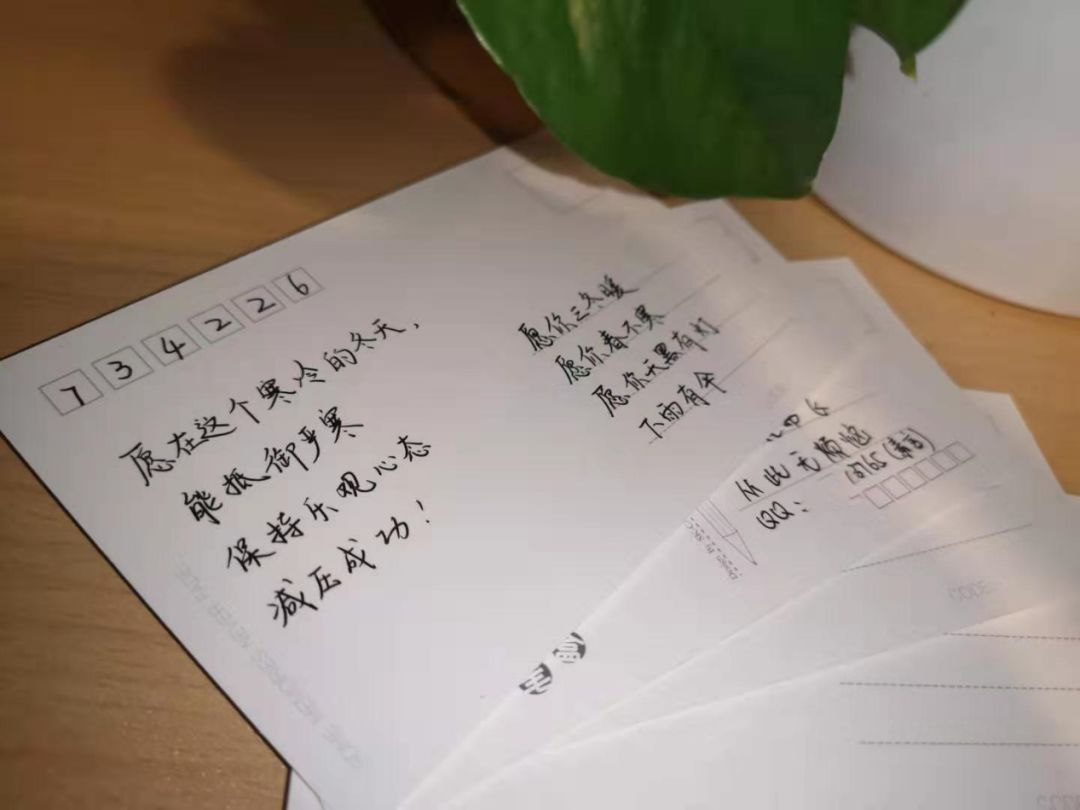 734226
愿在这个寒冷的冬天，
能抵御严寒
保持乐观心态
减压成功！
愿你三冬暖
愿你春不寒
愿你天黑有灯
下雨有伞
从此无烦恼
QQ:
SOME MEMORIES NEVER FADE
CODE